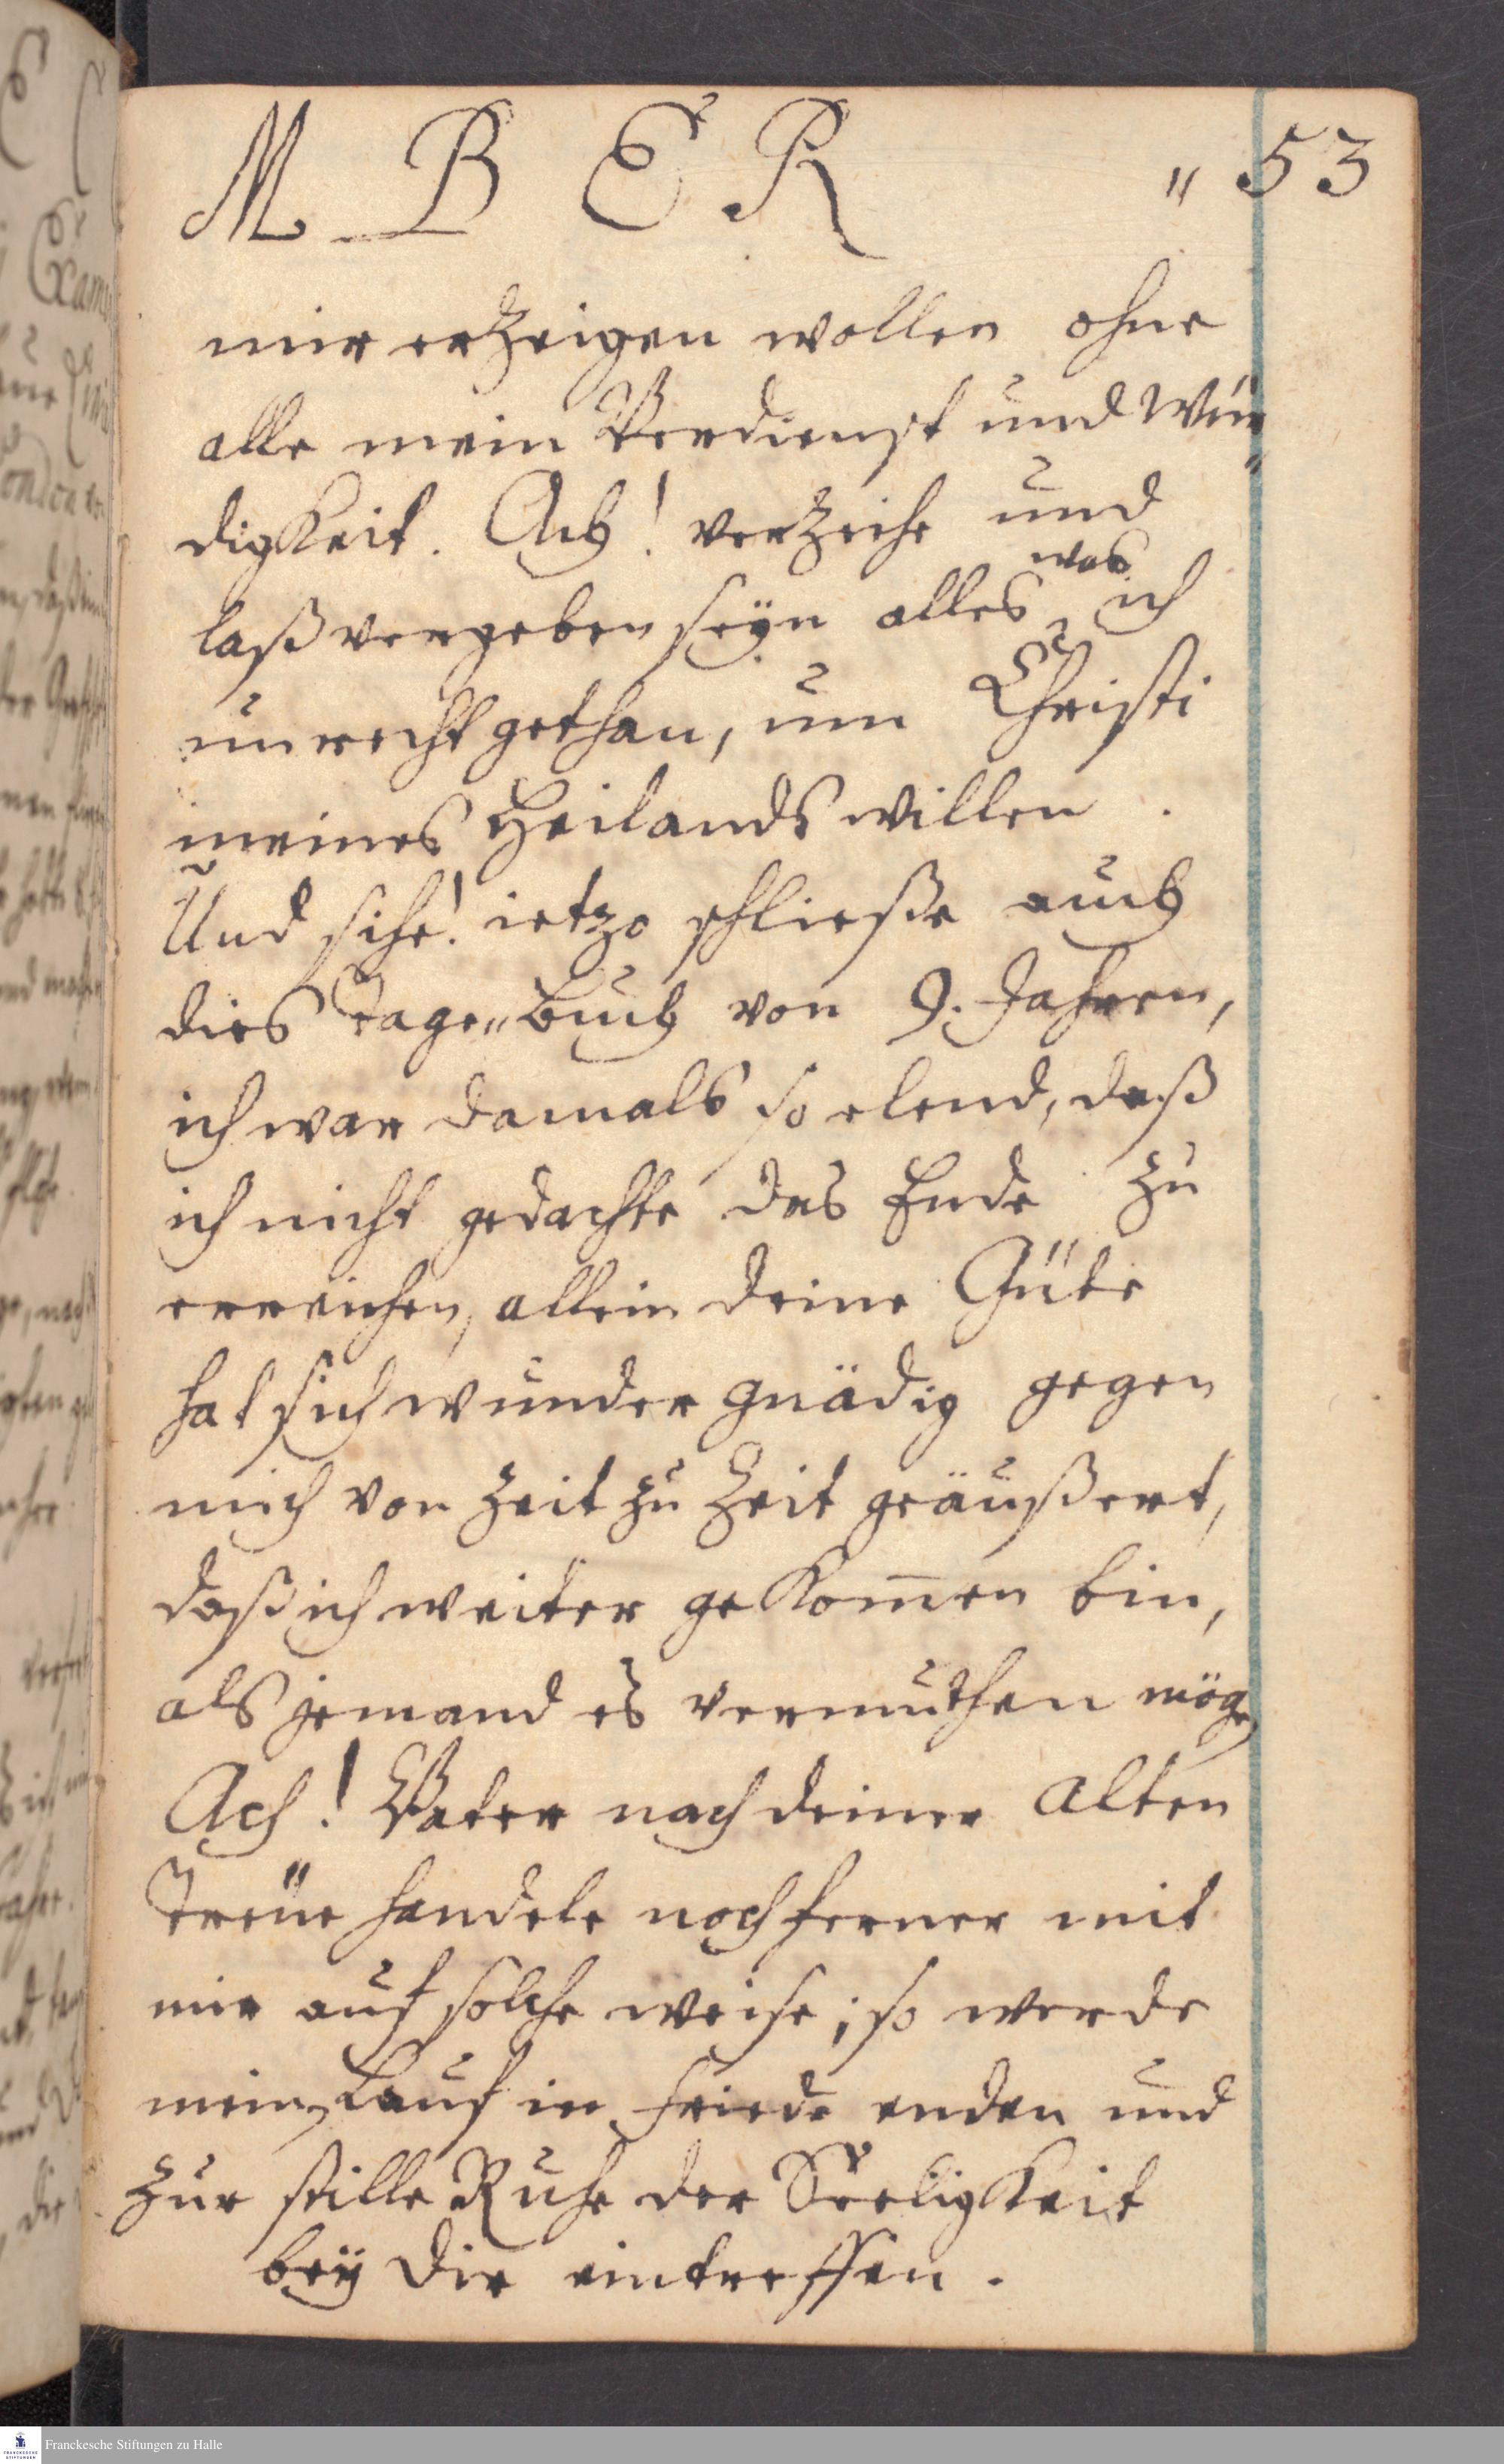 M B E R „ 53
mir erzeigen wollen ohne
alle mein Verdienst und Wür„
digkeit. Ach! verzeihe und
was
laß vergeben seÿn alles ich
unrecht gethan, um Christi
meines Heilands willen.
Und sihe! ietzo schließe auch
dies Tage„Buch von 9. Jahren,
ich war damals so elend, daß
ich nicht gedachte das Ende zu
erreichen, allein deine Güte
hat sich wunder gnädig gegen
mich von Zeit zu Zeit geäußert,
daß ich weiter gekom̅en bin,
als jemand es vermuthen möge
Ach! Vater nach deiner alten
Treüe handele noch ferner mit
mir auf solche weise; so werde
mein Lauf in Friede enden und
zur stille Ruhe der Seeligkeit
beÿ dir eintreffen.
Franckesche Stiftungen zu Halle